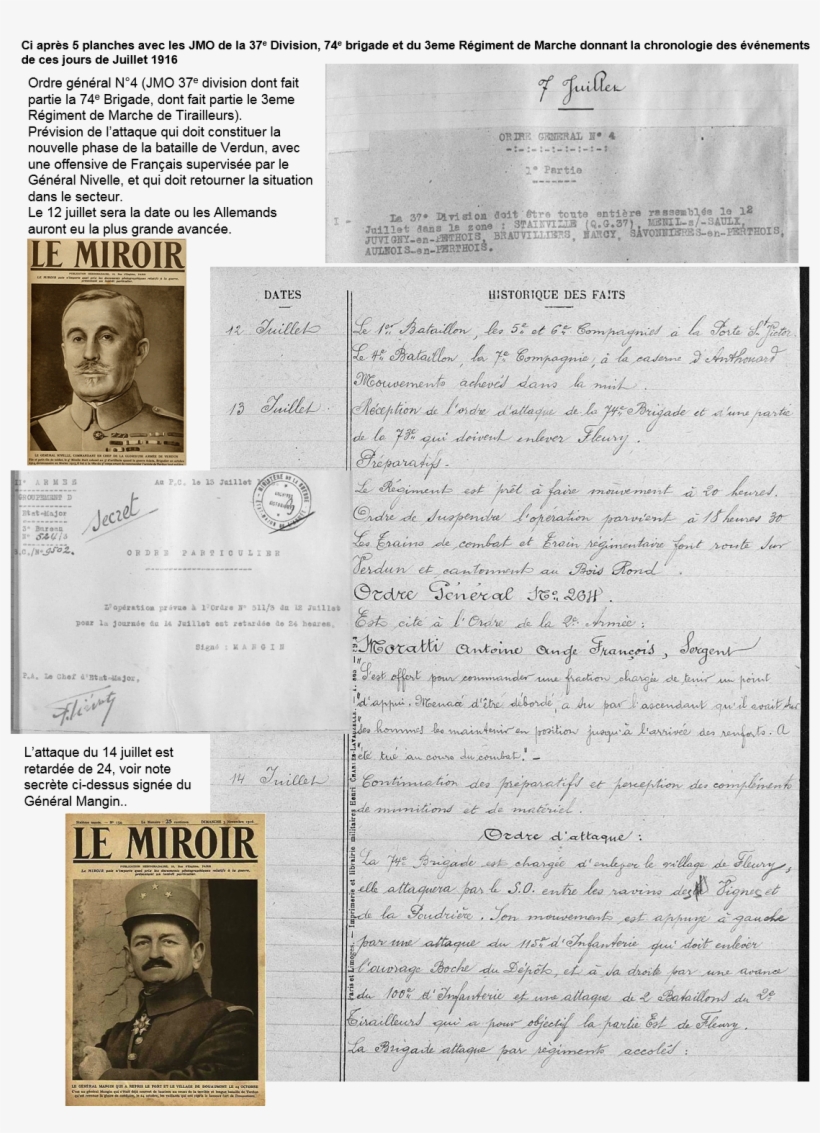 Ci après 5 planches avec les JMO de la 37e Division, 74e brigade et du 3eme Régiment de Marche donnant la chronologie des événements
de ces jours de Juillet 1916
Ordre général N°4 (JMO 37e division dont fait
partie la 74e Brigade, dont fait partie le 3eme
Régiment de Marche de Tirailleurs).
Prévision de l'attaque qui doit constituer la
nouvelle phase de la bataille de Verdun, avec
une offensive de Français supervisée par le
Général Nivelle, et qui doit retourner la situation
dans le secteur.
Le 12 juillet sera la date ou les Allemands
auront eu la plus grande avancée.
7 Juillet
ORDRE GENERAL N° 4
1° Partie
I - La 37° Division doit être toute entière rassemblée le 12
Juillet dans la zone : STAINVILLE (Q.G.37), MENIL-s/-SAULX,
JUVIGNY-en-PERTHOIS, BRAUVILLIERS, NARCY, SAVONNIERES-en-PERTHOIS,
AULNOIS-en-PERTHOIS.
LE MIROIR
LE GÉNÉRAL NIVELLE, COMMANDANT EN CHEF DE LA GLORIEUSE ARMÉE DE VERDUN
DATES
HISTORIQUE DES FAITS
12 Juillet
Le 1er Bataillon, les 5e et 6e Compagnies à la Porte St Victor.
Le 4e Bataillon, la 7e Compagnie, à la caserne d'Anthouard
Mouvements achevés dans la nuit.
13 Juillet
Réception de l'ordre d'attaque de la 74e Brigade et d'une partie
de la 73e qui doivent enlever Fleury.
Préparatifs.
Le Régiment est prêt à faire mouvement à 20 heures.
Ordre de suspendre l'opération parvient à 18 heures 30
Les Trains de combat et Train régimentaire font route sur
Verdun et cantonnent au Bois Rond.
Ordre Général No 264.
Est cité à l'Ordre de la 2e Armée :
Moratti Antoine Ange François, Sergent
S'est offert pour commander une fraction chargée de tenir un point
d'appui. Menacé d'être débordé, a su par l'ascendant qu'il avait sur
ses hommes les maintenir en position jusqu'à l'arrivée des renforts. A
été tué au cours du combat. -
14 Juillet
Continuation des préparatifs et perception des compléments
de munitions et de matériel.
Ordre d'attaque :
La 74e Brigade est chargée d'enlever le village de Fleury,
elle attaquera par le S.O. entre les ravins des Vignes et
de la Poudrière. Son mouvements est appuyé à gauche
par une attaque du 115e d'Infanterie qui doit enlever
l'ouvrage Boche du Dépôt, et à sa droite par une avance
du 100e d'Infanterie et une attaque de 2 Bataillons du 2e
Tirailleurs qui a pour objectif la partie Est de Fleury.
La Brigade attaque par régiments accolés :
Paris et Limoges. — Imprimerie et librairie militaires Henri CHARLES-LAVAUZELLE.
II° ARMEE
GROUPEMENT D
Etat-Major
3° Bureau
Secret
Au P.C. le 13 Juillet
MINISTÈRE DE LA GUERRE
ORDRE PARTICULIER
L'opération prévue à l'Ordre N° 511/3 du 12 Juillet
pour la journée du 14 Juillet est retardée de 24 heures.
Signé : MANGIN
P.A. Le Chef d'Etat-Major,
L'attaque du 14 juillet est
retardée de 24, voir note
secrète ci-dessus signée du
Général Mangin..
LE MIROIR
LE GÉNÉRAL MANGIN QUI A REPRIS LE FORT ET LE VILLAGE DE DOUAUMONT LE 24 OCTOBRE